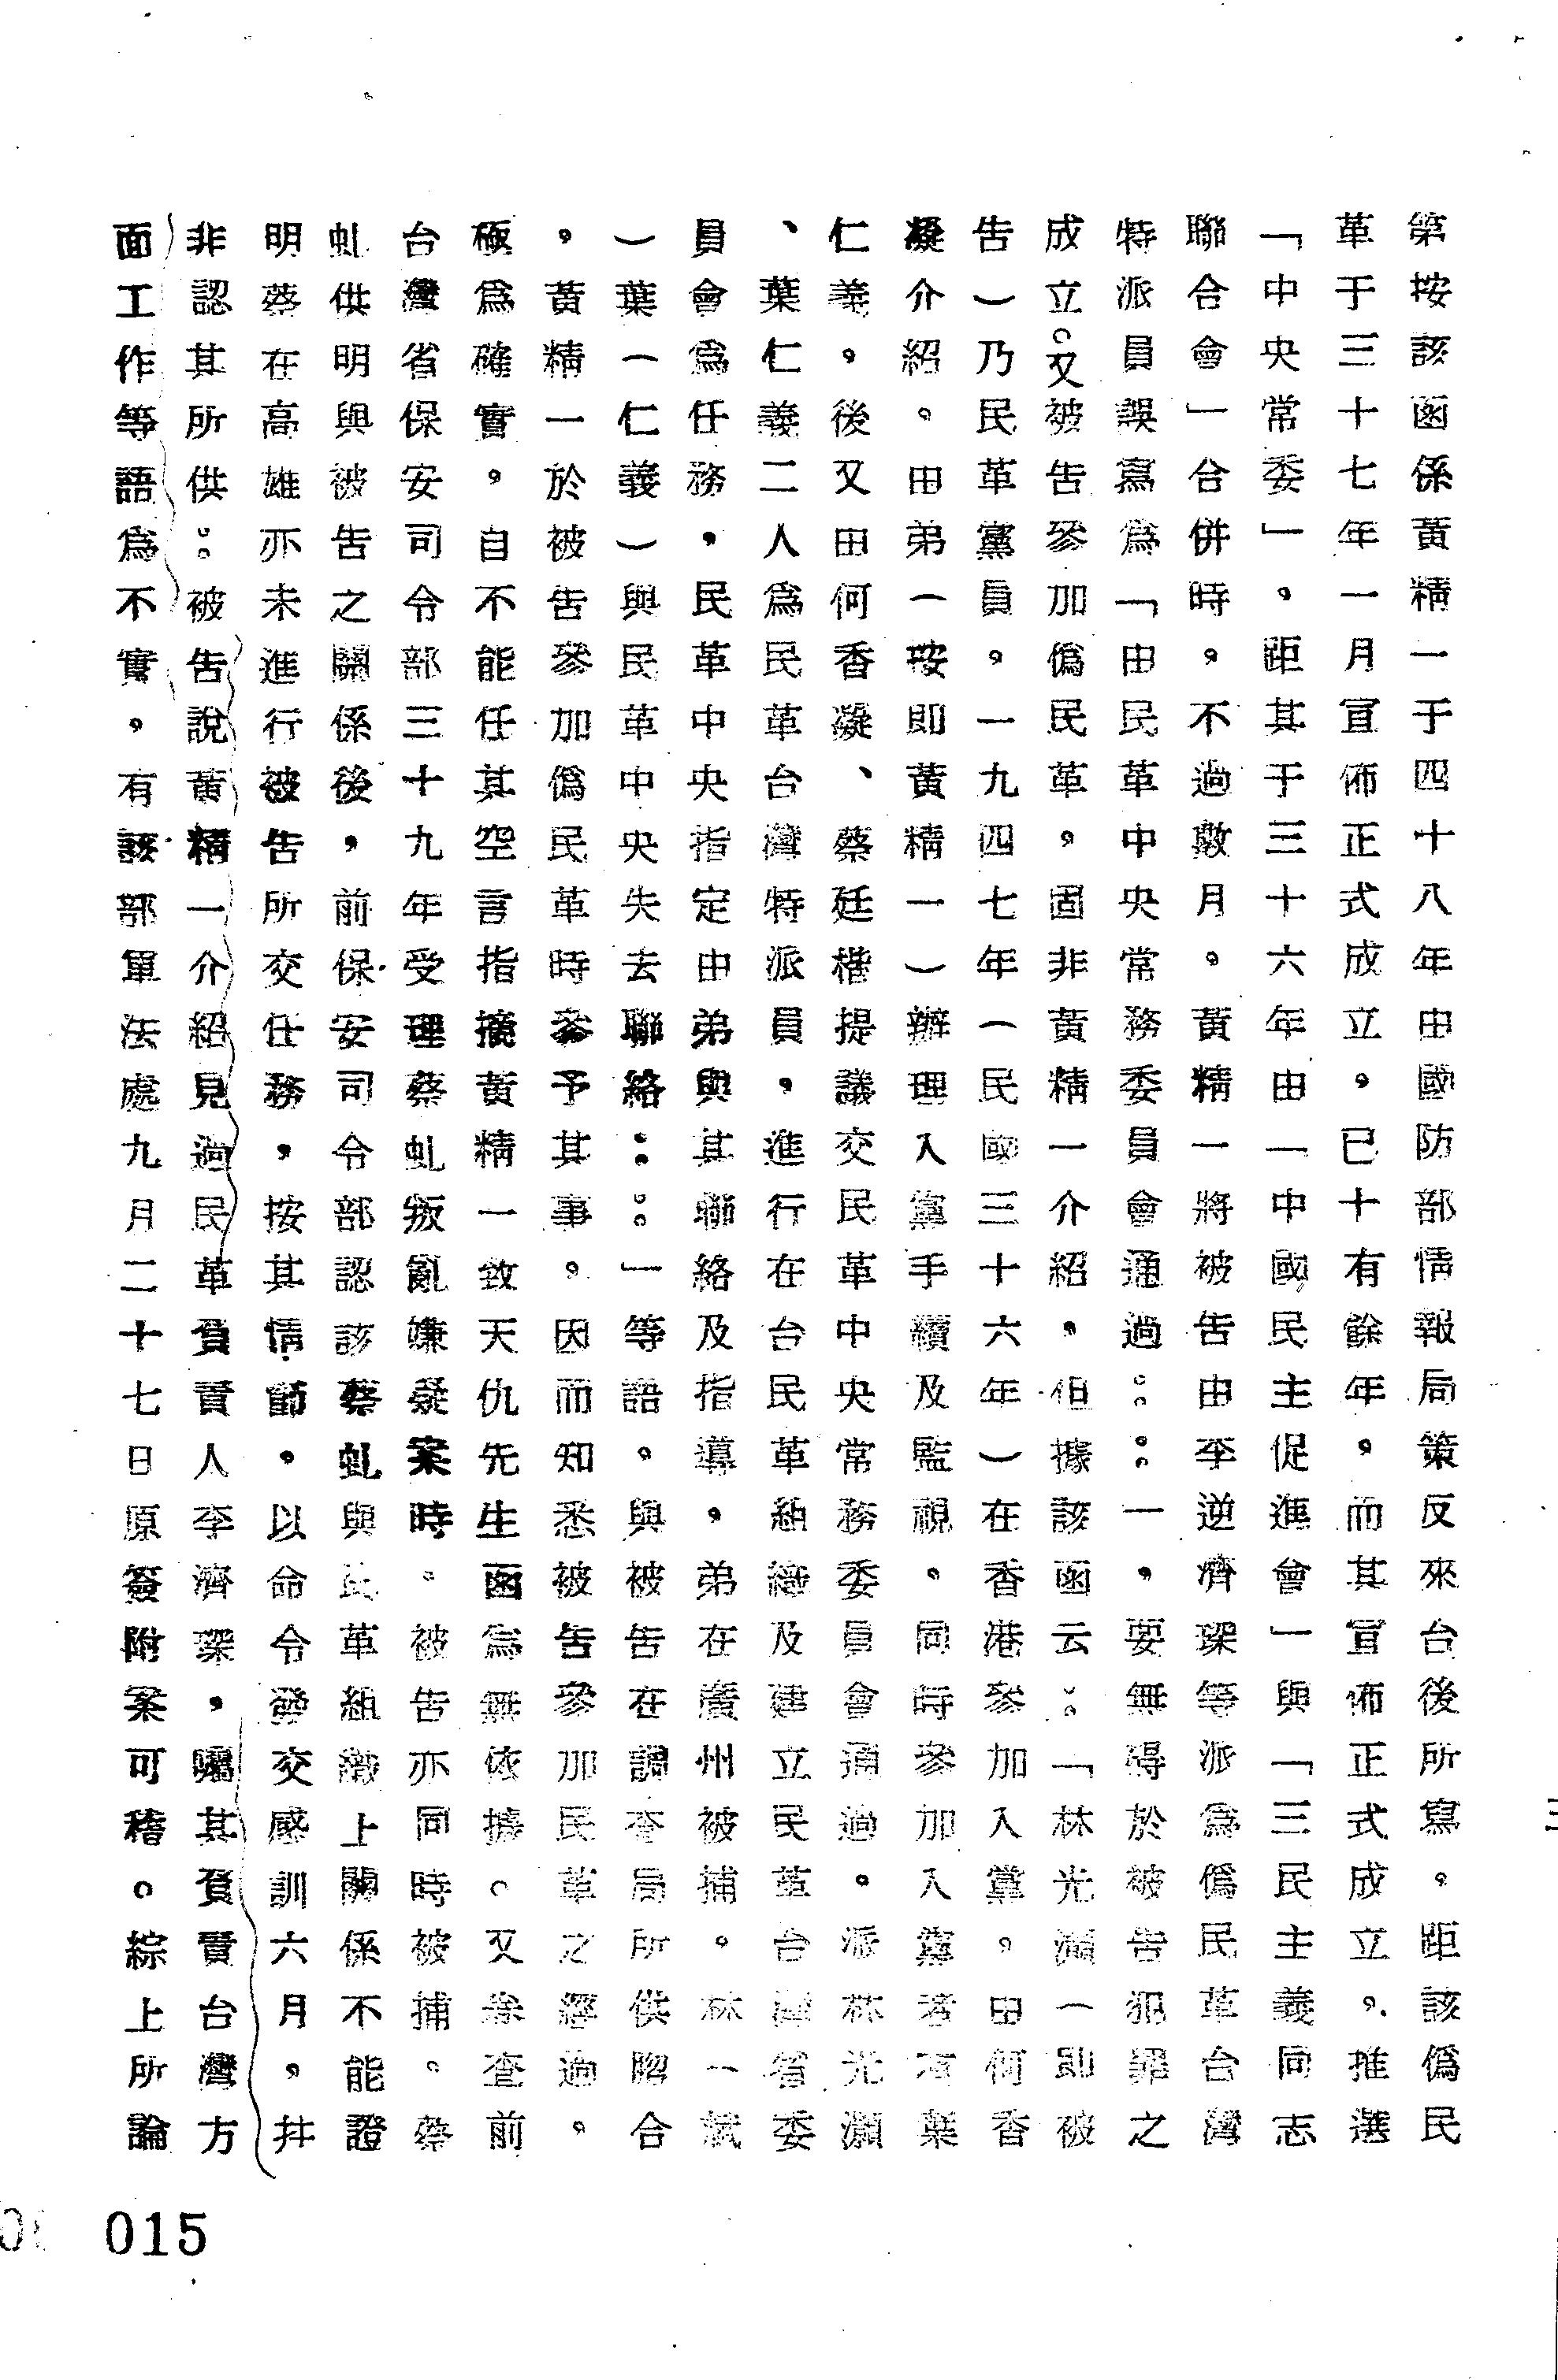 第按該函係黃精一于四十八年由國防部情報局策反來台後所寫。距該偽民
革于三十七年一月宣佈正式成立。已十有餘年。而其宣佈正式成立。推選
「中央常委」。距其于三十六年由「中國民主促進會」與「三民主義同志
聯合會」合併時。不過數月。黃精一將被告由李逆濟琛等派為偽民革台灣
特派員誤寫為「由民革中央常務委員會通過……」，要無碍於被告犯罪之
成立。又被告參加偽民革。固非黃精一介紹，但據該函云：「林光灝（即被
告）乃民革黨員。一九四七年（民國三十六年）在香港參加入黨。由何香
凝介紹。由弟（按即黃精一）辦理入黨手續及監視。同時參加入黨者有葉
仁義。後又由何香凝、蔡廷楷提議交民革中央常務委員會通過。派林光灝
、葉仁義二人為民革台灣特派員，進行在台民革組織及建立民革台灣省委
員會為任務，民革中央指定由弟與其聯絡及指導，弟在廣州被捕。林（一）
）葉（仁義）與民革中央失去聯絡……」等語。與被告在調查局所供脗合
，黃精一於被告參加偽民革時參予其事。因而知悉被告參加民革之經過。
極為確實。自不能任其空言指摘黃精一致天仇先生函為無依據。又卷查前
台灣省保安司令部三十九年受理蔡虬叛亂嫌疑案時。被告亦同時被捕。蔡
虬供明與被告之關係後，前保安司令部認該蔡虬與民革組織上關係不能證
明蔡在高雄亦未進行被告所交任務，按其情節。以命令發交感訓六月，并
非認其所供：被告說黃精一介紹見過民革負責人李濟琛，囑其負責台灣方
面工作等語為不實。有該部軍法處九月二十七日原簽附案可稽。綜上所論
三
015